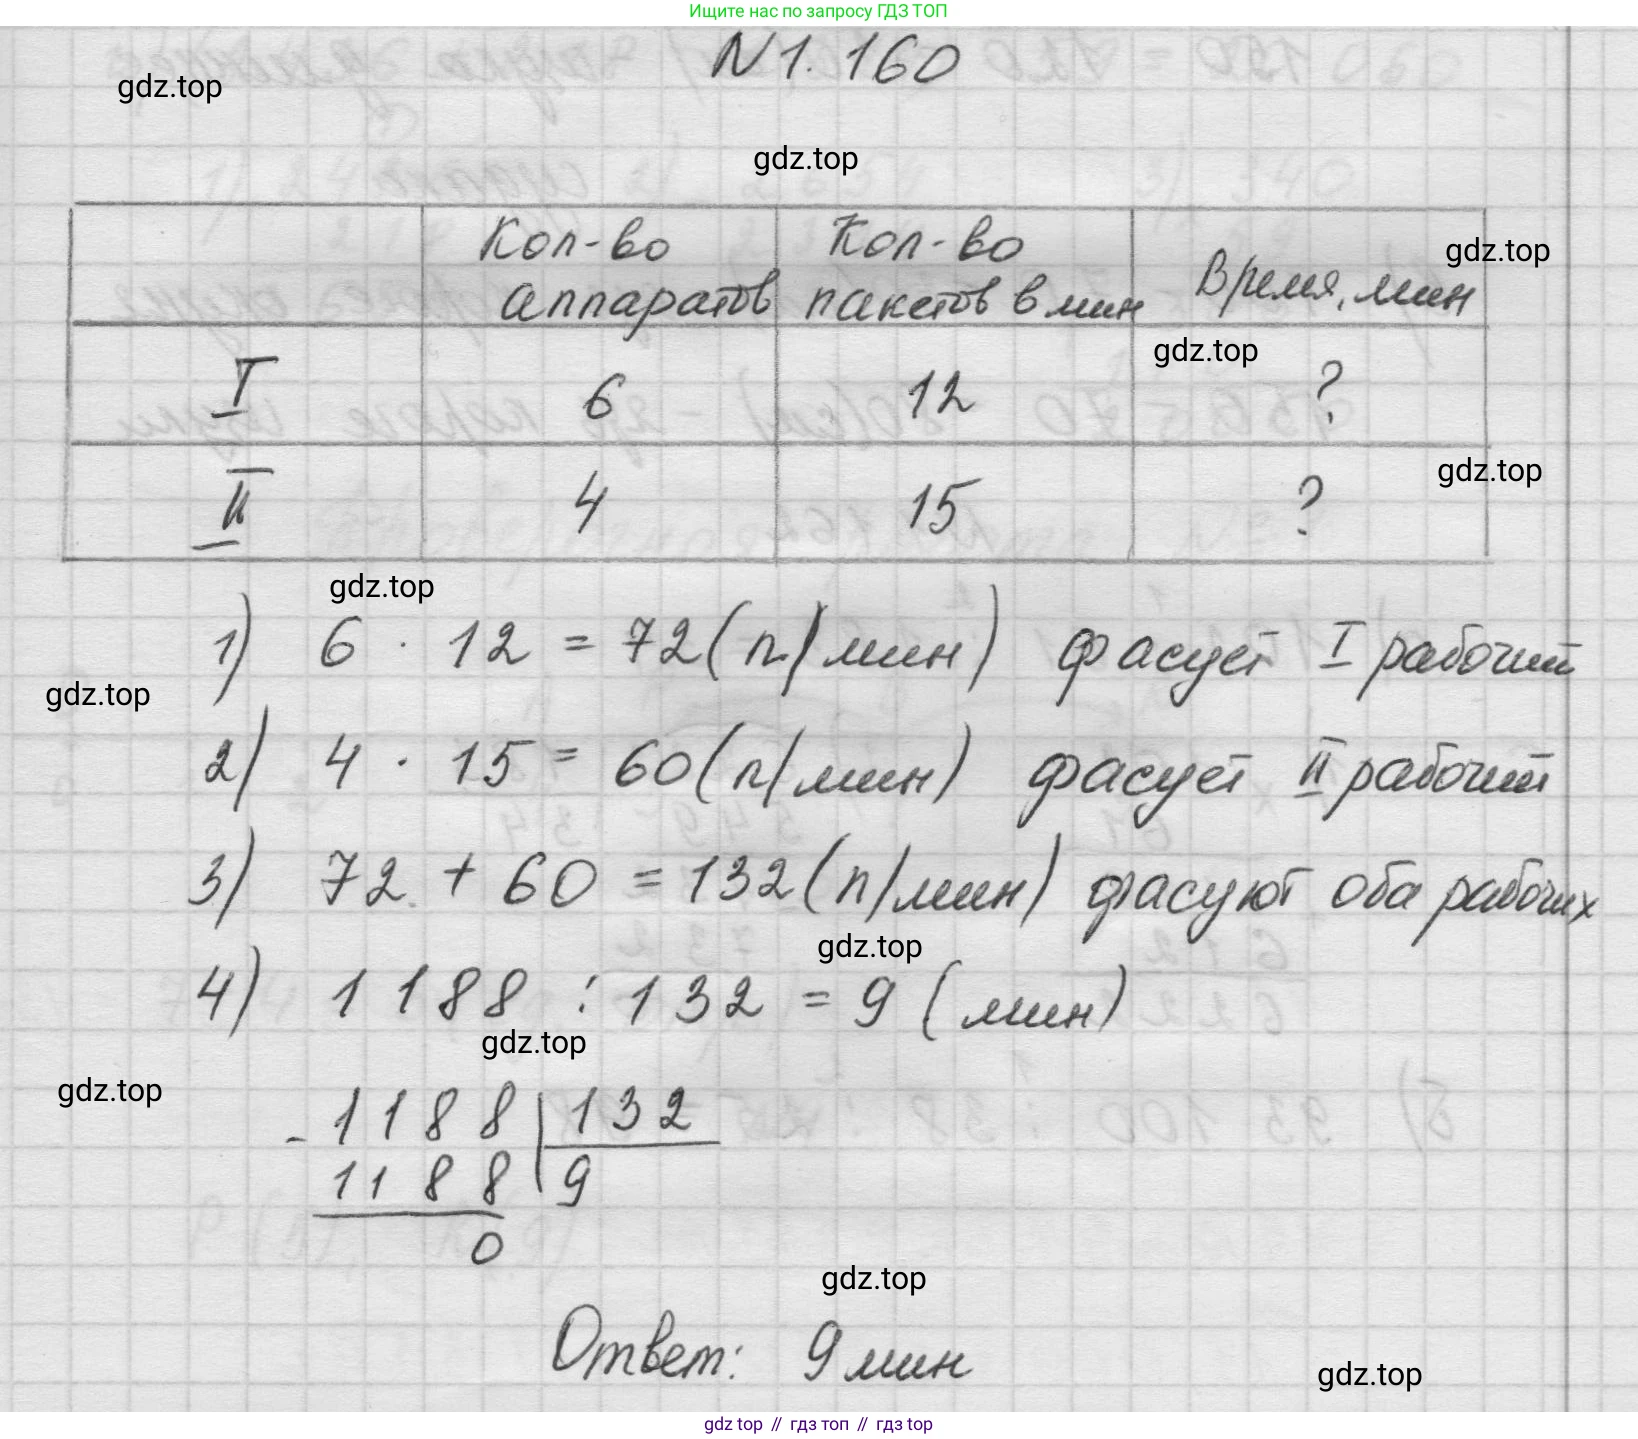 Ищите нас по запросу ГДЗ ТОП
N 1. 160
gdz.top
gdz.top
Кол-во аппаратов
Кол-во пакетов в мин
Время, мин
gdz.top
I 6 12 ?
gdz.top
II 4 15 ?
gdz.top
gdz.top
1) 6 · 12 = 72 (п/мин) фасует I рабочий
gdz.top
2) 4 · 15 = 60 (п/мин) фасует II рабочий
3) 72 + 60 = 132 (п/мин) фасуют оба рабочих
gdz.top
4) 1188 : 132 = 9 (мин)
gdz.top
gdz.top
- 1188 | 132
1188 | 9
0
gdz.top
Ответ: 9 мин
gdz.top
gdz top // гдз топ // gdz top